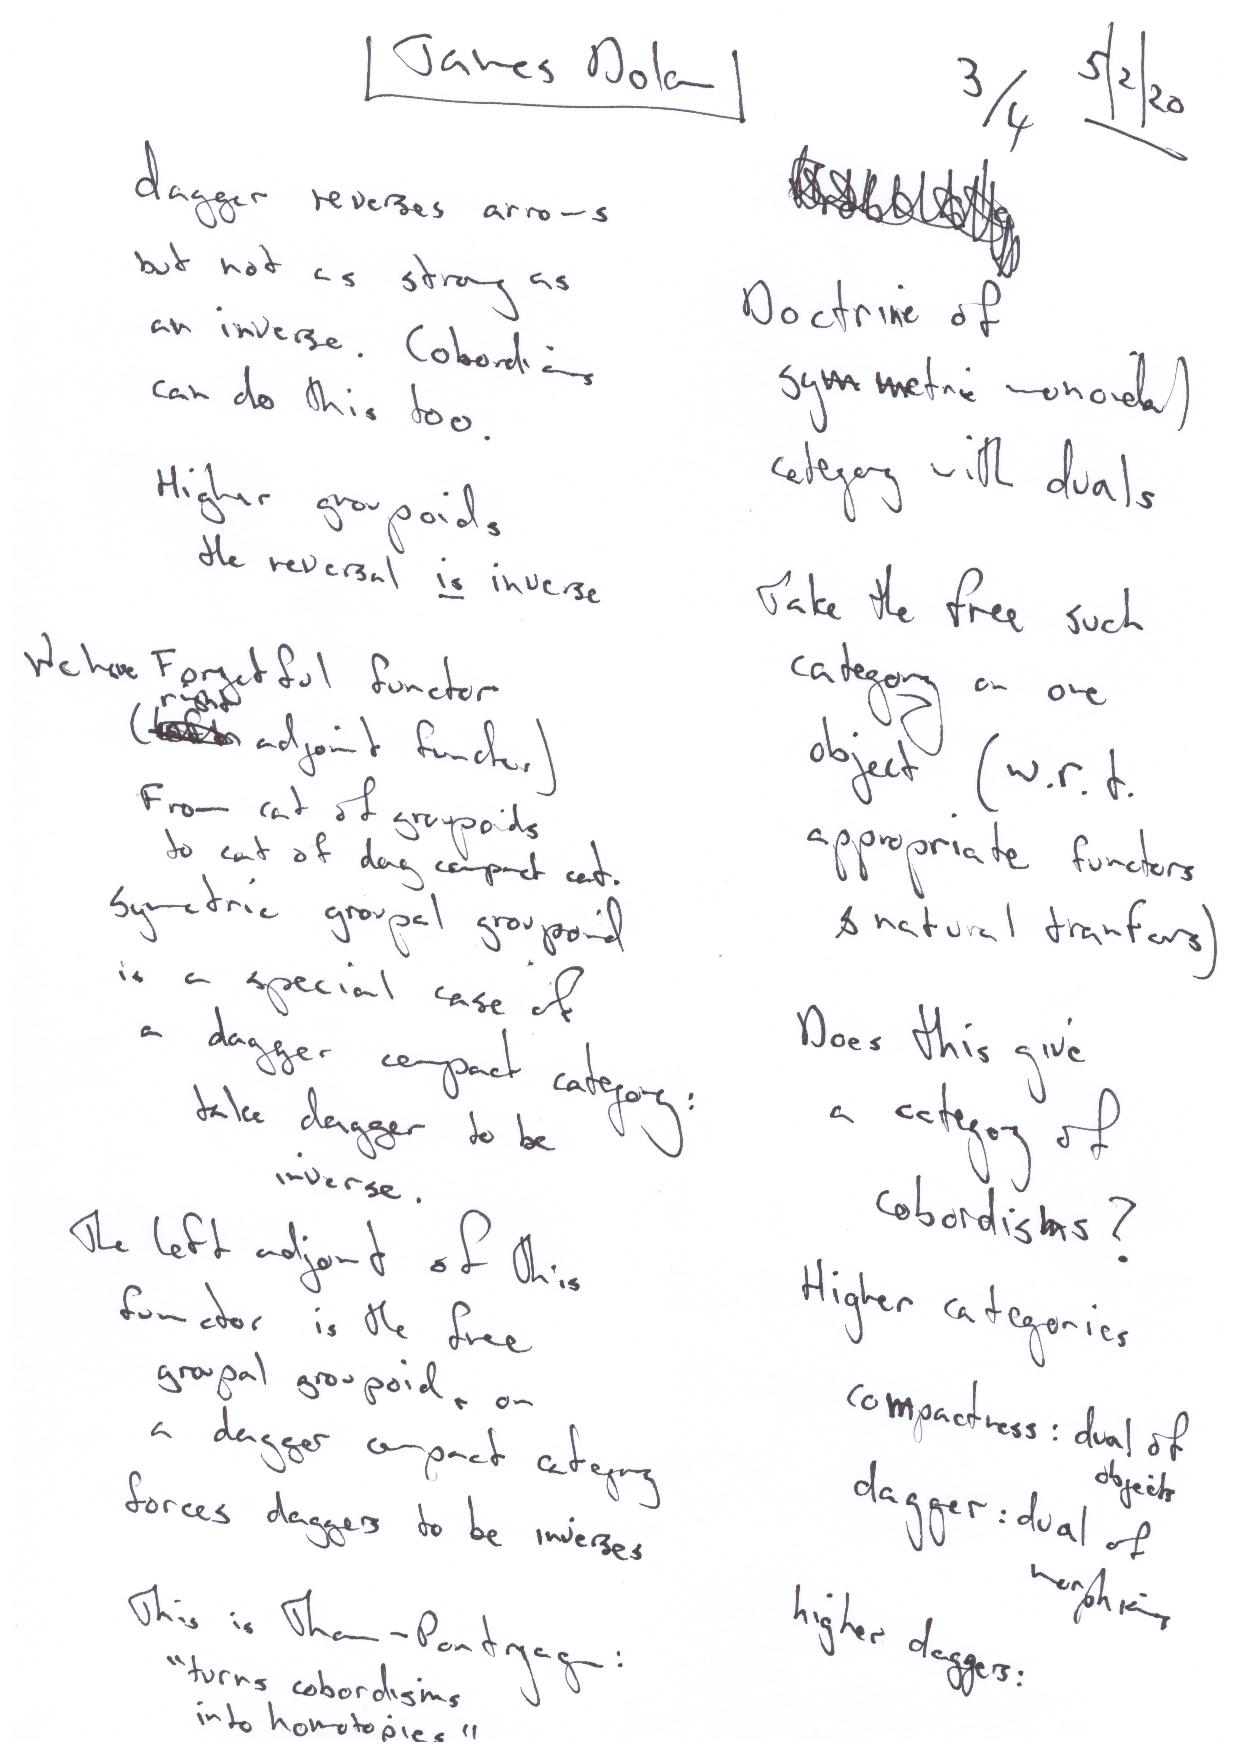 James Dolan
3/4 5/2/20
dagger reverses arrows
but not as strong as
an inverse. Cobordisms
can do this too.
Higher groupoids
the reversal is inverse
We have Forgetful functor
right
( adjoint functor)
From cat of groupoids
to cat of dag compact cat.
Symetric groupal groupoid
is a special case of
a dagger compact category:
take dagger to be
inverse.
The left adjoint of this
functor is the free
groupal groupoid, on
a dagger compact category
forces daggers to be inverses
This is Thom-Pontryagin:
"turns cobordisms
into homotopies"
Doctrine of
symmetric monoidal
category with duals
Take the free such
category on one
object (w.r.t.
appropriate functors
& natural tranfors)
Does this give
a category of
cobordisms?
Higher categories
compactness: dual of
objects
dagger: dual of
morphisms
higher daggers: